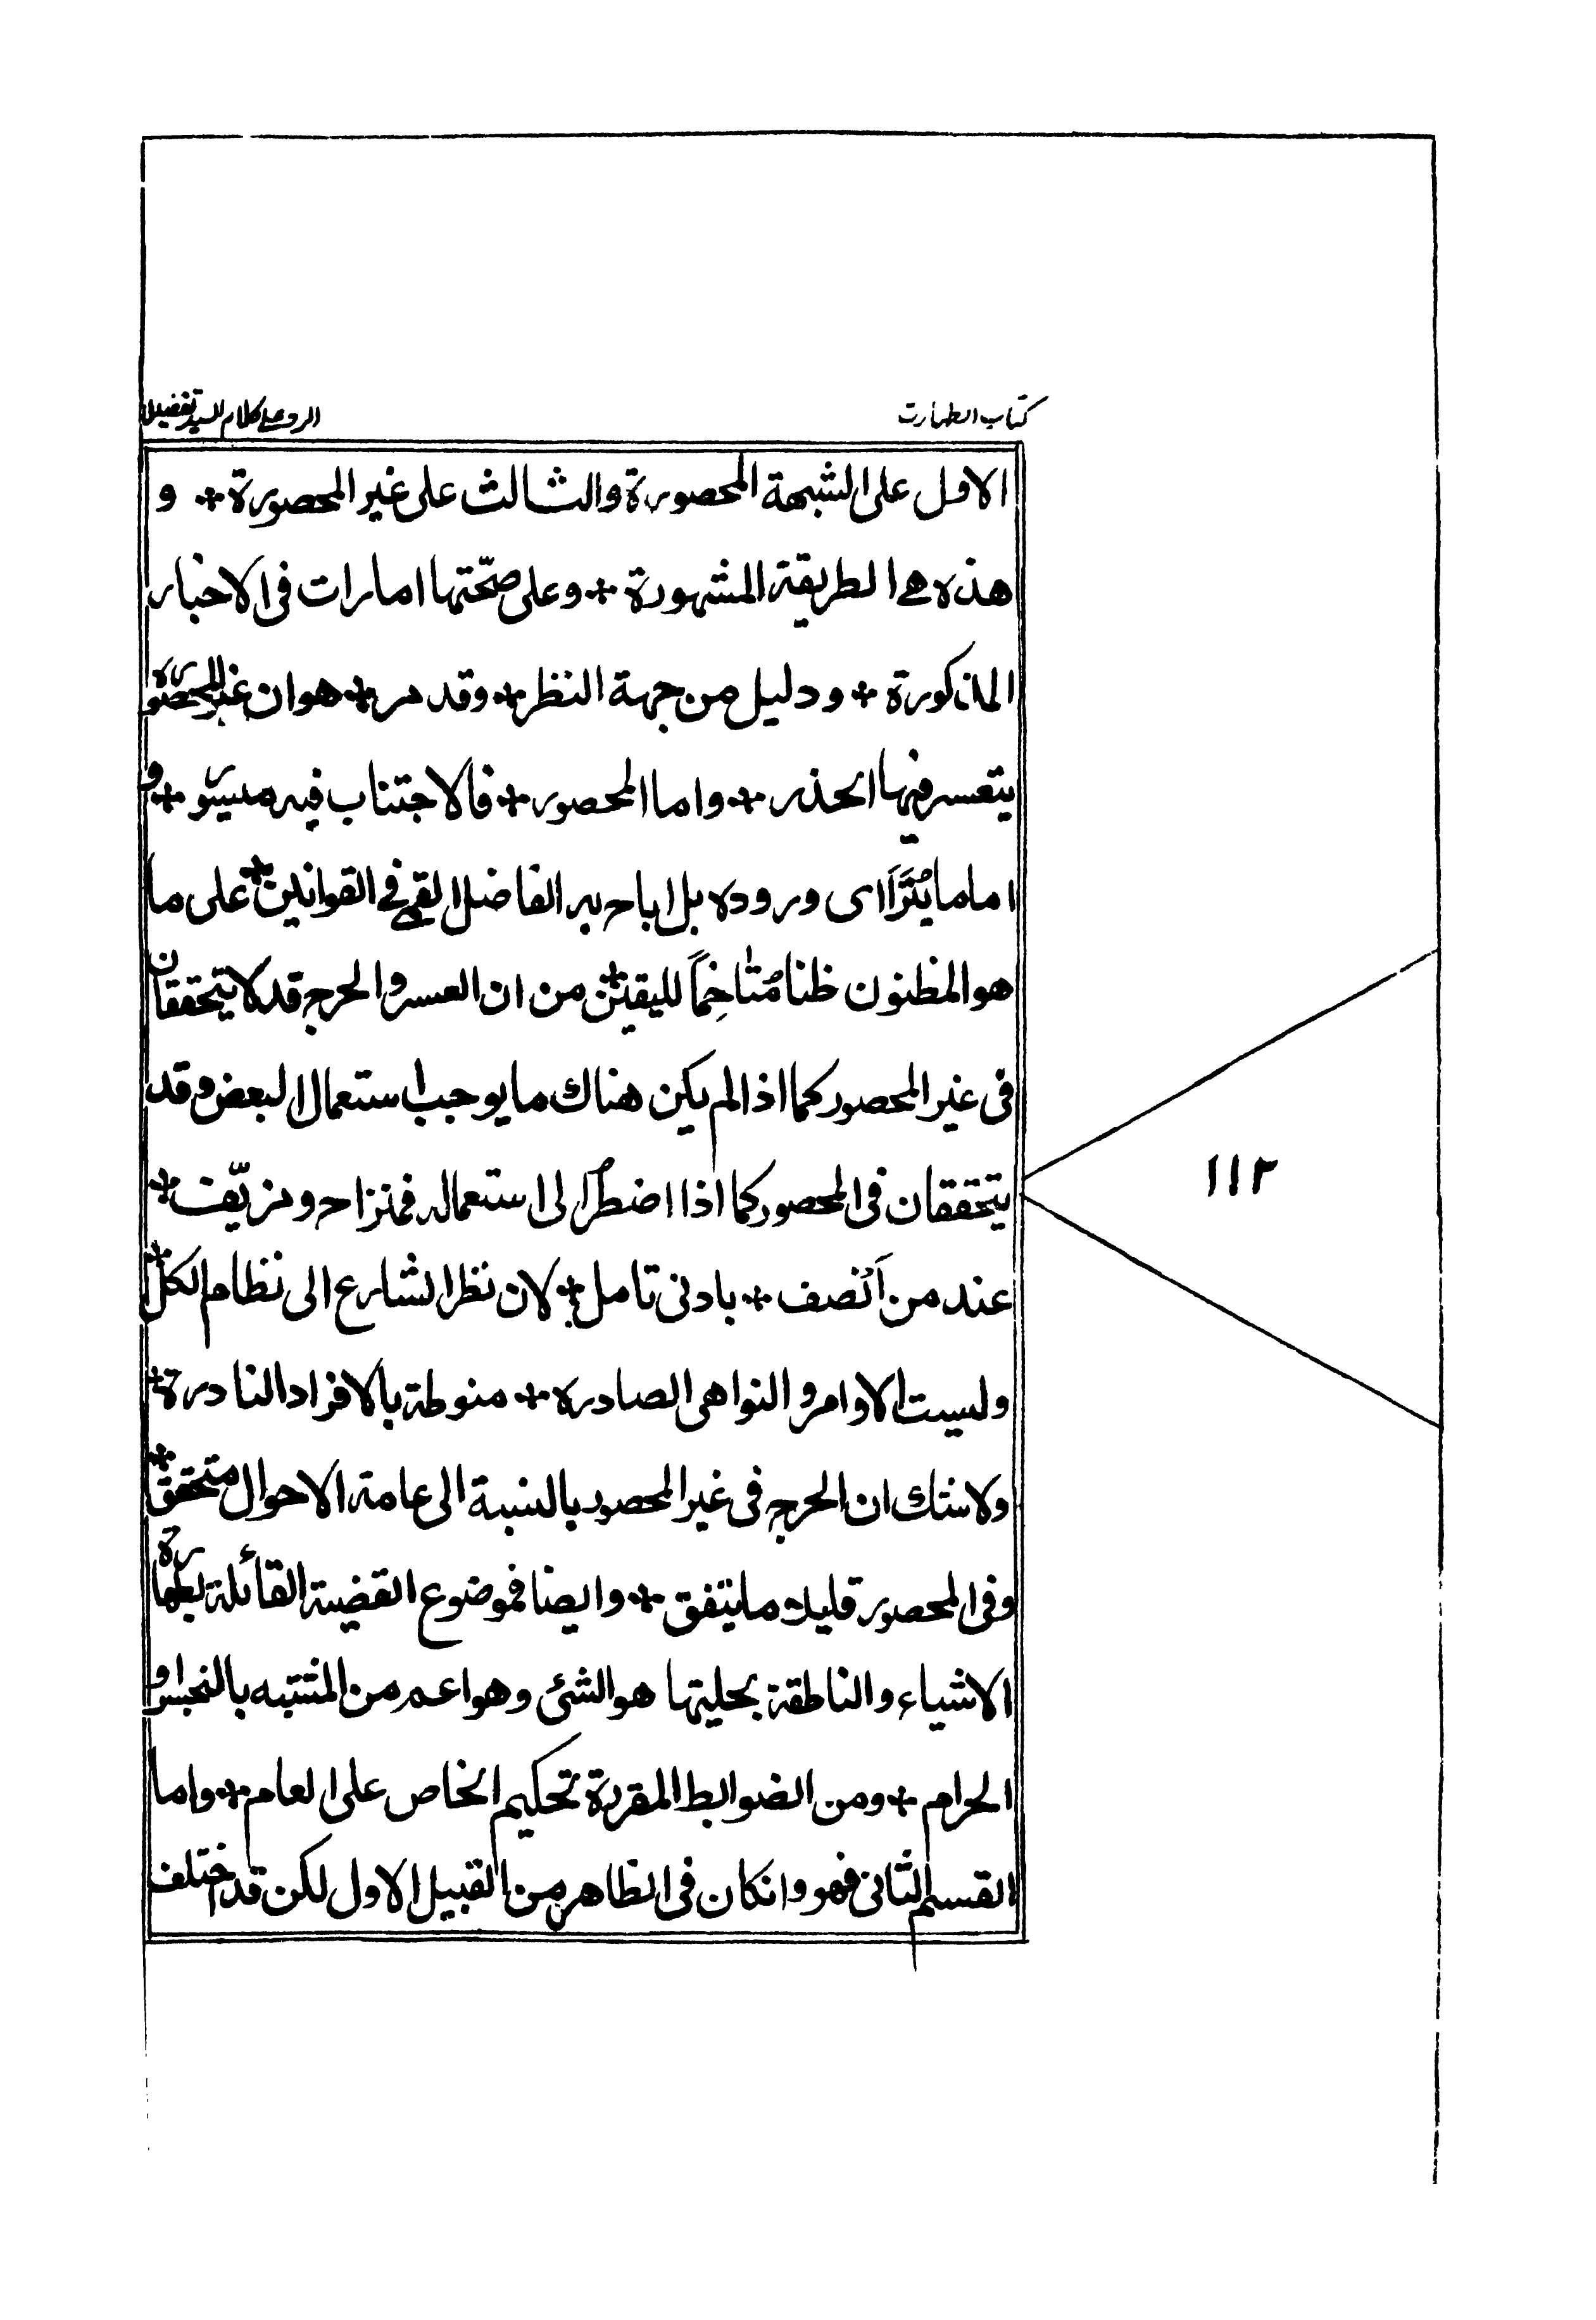 كتاب الطهارت
الرد على كلام السيد تفضيل
الاول على الشبهة المحصورة والثالث على غير المحصورة + و
هذه هي الطريقة المشهورة + وعلى صحّتها امارات فى الاخبار
المذكورة + ودليل من جهة النظر + وقد مر + هو ان غير المحصورة
يتعسر فيها الحذر + واما المحصور + فالاجتناب فيه ميسور + و
اما ما يُتَرَااى وروده بل اباح به الفاضل القمى فى القوانين + على ما
هو المظنون ظنا مُتاخِماً لليقين + من ان العسر والحرج قد لا يتحققان
فى غير المحصور كما اذا لم يكن هناك ما يوجب استعمال البعض وقد
يتحققان فى المحصور كما اذا اضطُرّ الى استعماله فمنزاح ومزيّف +
عند من اَنْصف + بادنى تامل + لان نظر الشارع الى نظام الكل +
وليست الاوامر والنواهى الصادره + منوطة بالافراد النادرة +
ولا شك ان الحرج فى غير المحصور بالنسبة الى عامة الاحوال متحقق +
وفى المحصور قليلا ما يتفق + وايضا فموضوع القضية القائلة بطهارة
الاشياء والناطقة بحليتها هو الشئ وهو اعم من المشتبه بالنجس او
الحرام + ومن الضوابط المقررة تحكيم الخاص على العام + واما
القسم الثانى فهو وانكان فى الظاهر من القبيل الاول لكن قد اختلف
١١٢